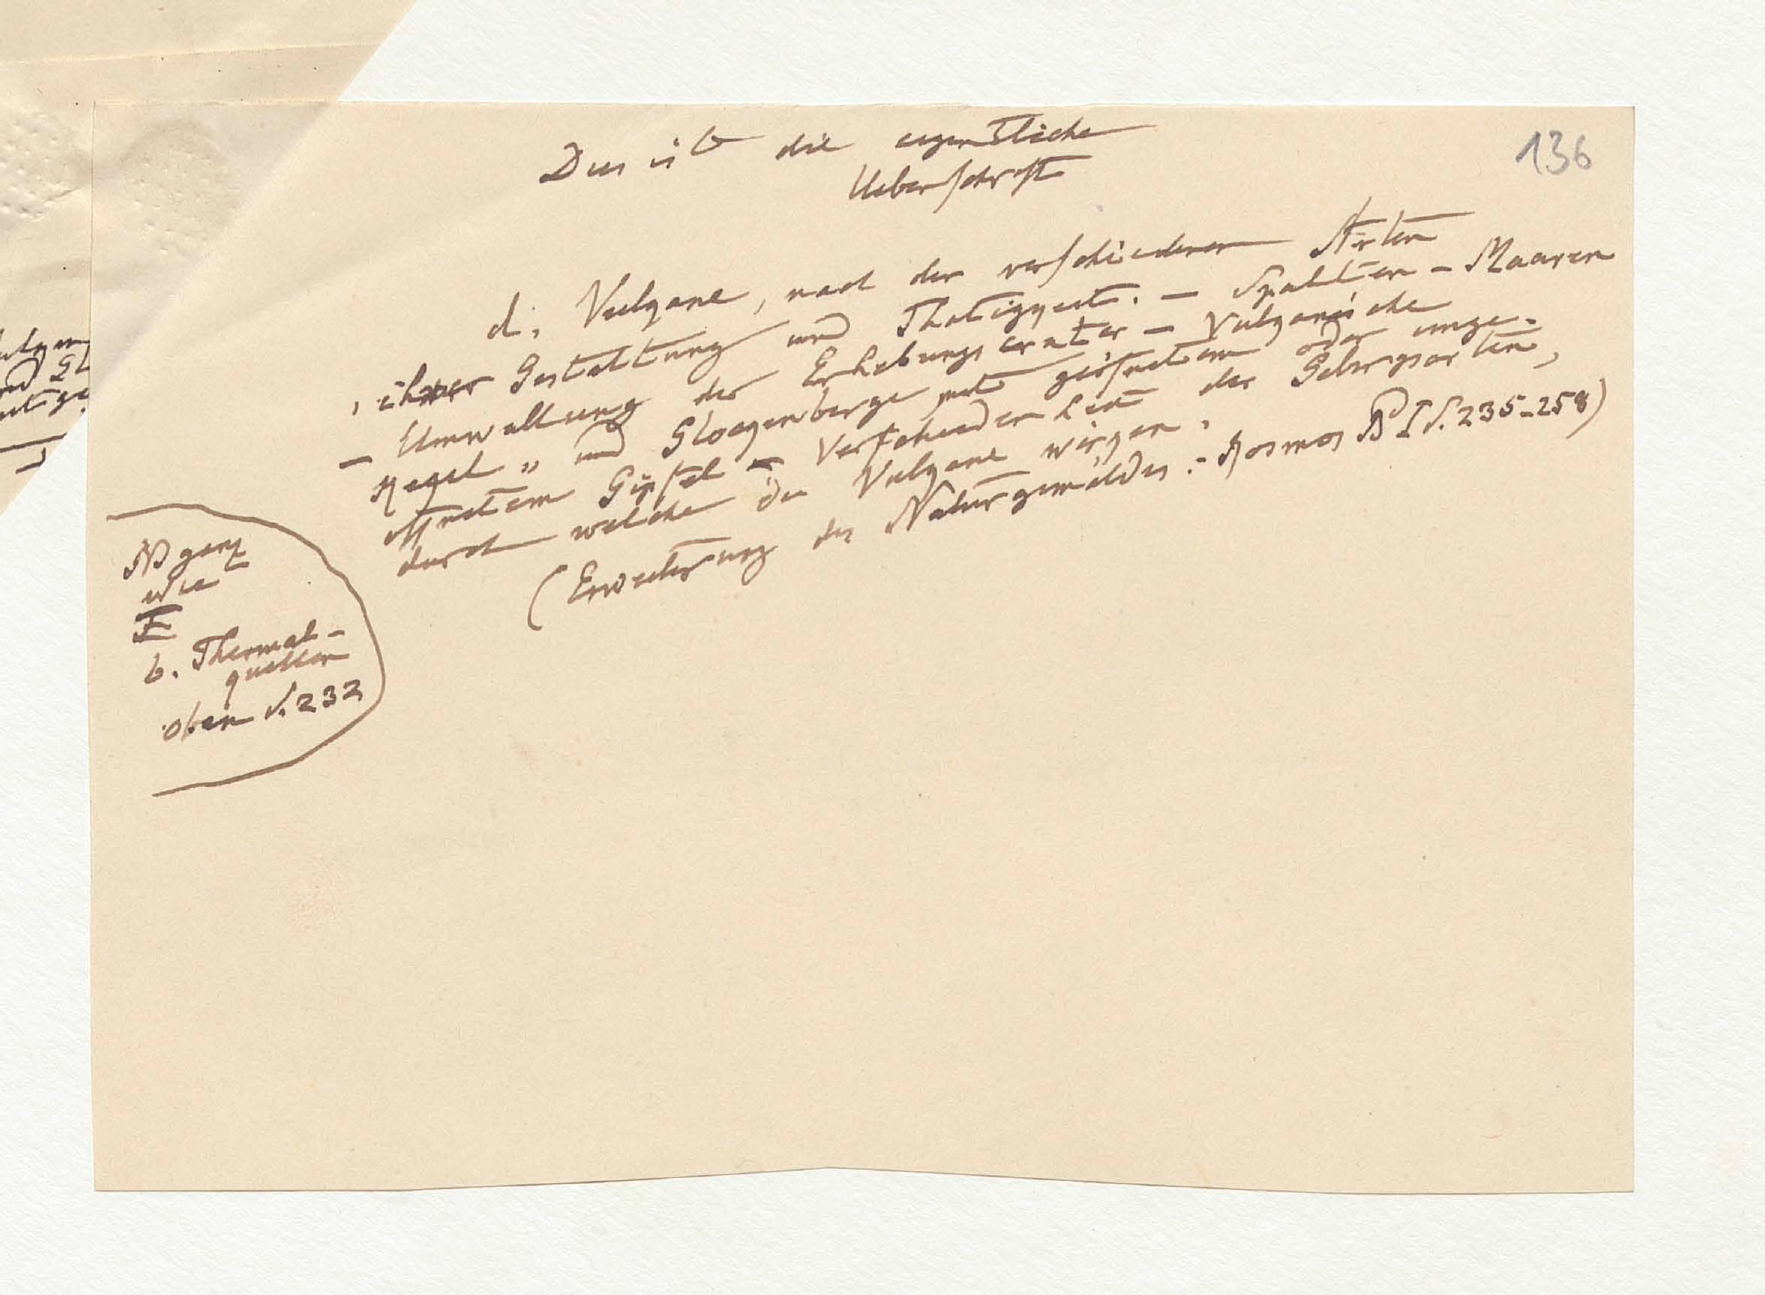 136
Dies ist die eigentliche
Ueberschrift
d. Vulkane, nach der verschiedenen Arten
ihrer Gestaltung und Thätigkeit. – Spalten – Maaren
– Umwallung der Erhebungscrater – Vulkanische
Kegel- und Glockenberge mit geöfnetem oder unge-
öffnetem Gipfel – Verschiedenheit der Gebirgsarten,
durch welche die Vulkane wirken.
(Erweiterung des Naturgemäldes: Kosmos Bd I S. 235–258)
NB ganz
wie
b. Thermal-
quellen
oben S. 232